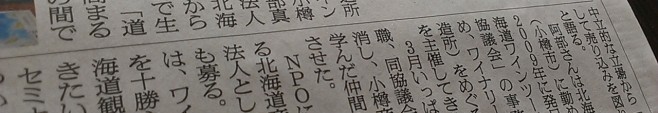 中立的な立場から
して売り込みを図り
と語る。
阿部さんは北海
(小樽市)に勤め
2009年に発足
海道ワインツー
協議会」の事務
め、ワイナリー
造所)をめぐる
を主催してき
3月いっぱ
職、同協議会
消し、小樽商
学んだ仲間
させた。
NPOに
る北海道産
法人とし
も募る。
は、ワイ
を十勝
きたい
海道観
セミナ
造所
イン
小樽
部真
法人
北海
から
で生
「道
高まる
の間で